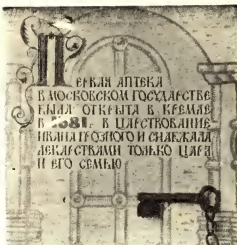 Первая аптека
в Московском государстве
была открыта в Кремле
в 1581 г. в царствование
Ивана Грозного и снабжала
лекарствами только царя
и его семью